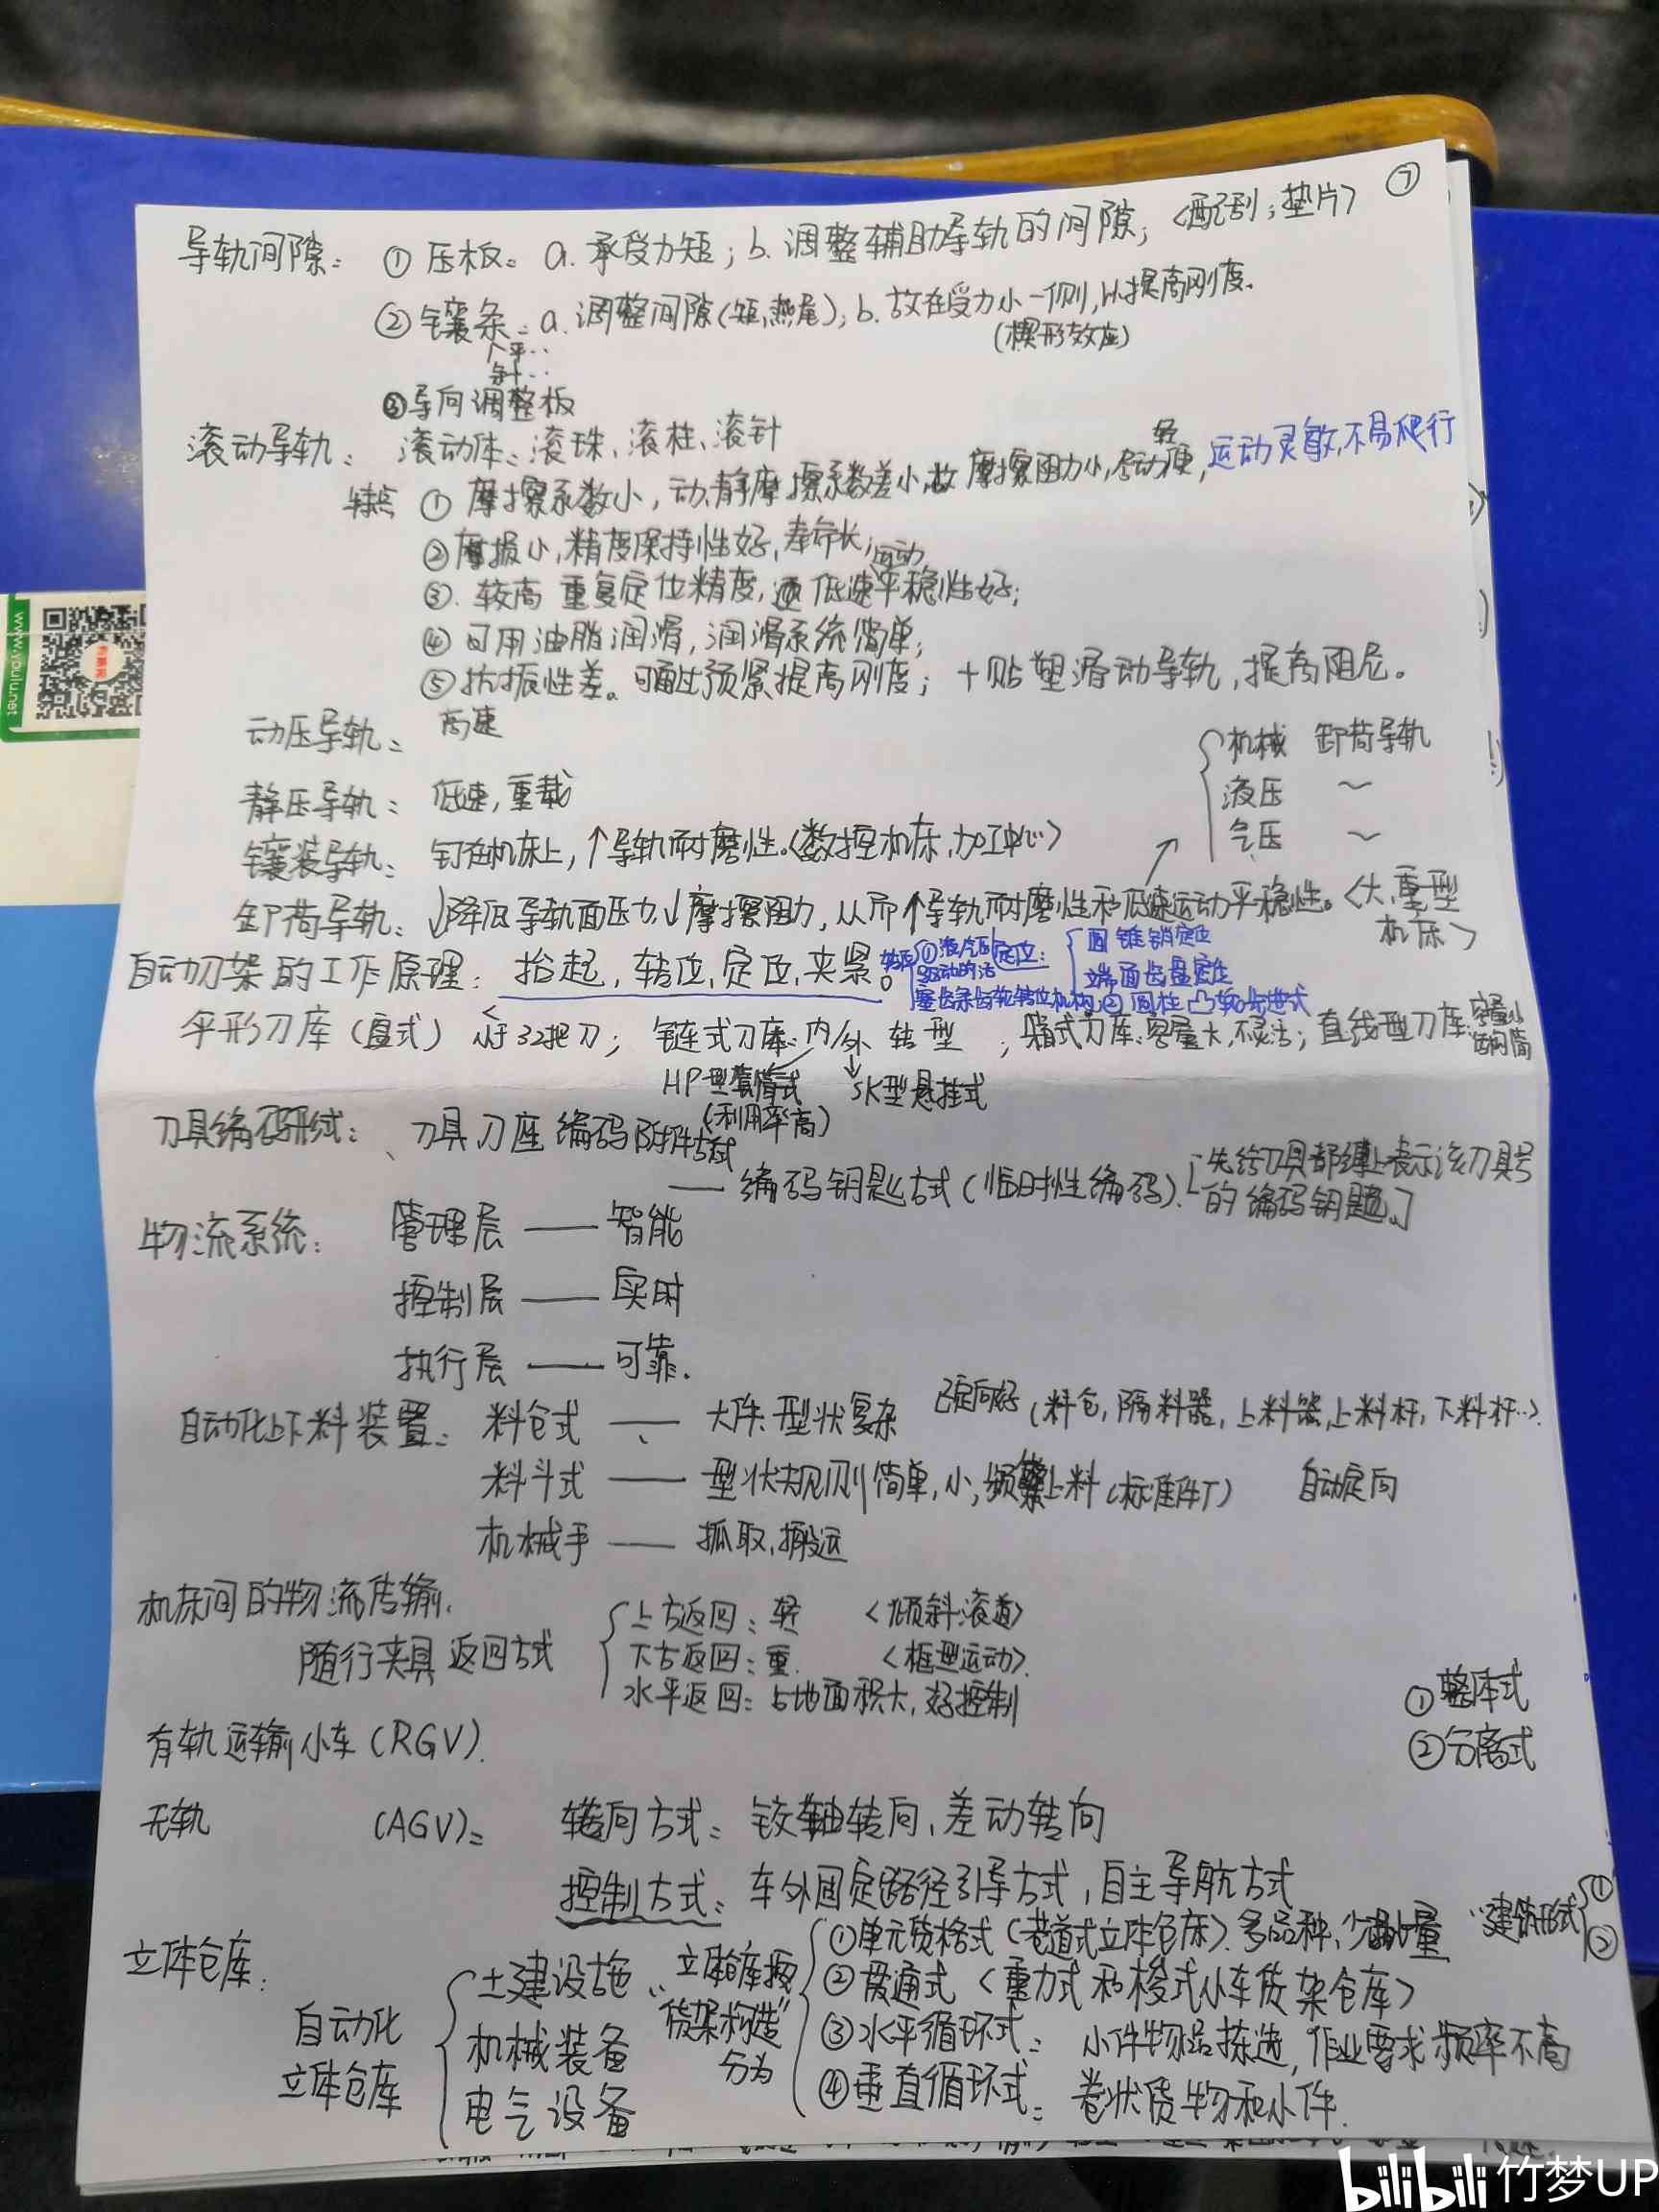 ⑦
导轨间隙: ①压板: a. 承受力矩; b. 调整辅助导轨的间隙; <配刮; 垫片>
②镶条: a. 调整间隙(矩,燕尾); b. 放在受力小一侧,以提高刚度.
(楔形效应)
平..
斜..
③导向调整板
滚动导轨: 滚动体: 滚珠、滚柱、滚针
特点 ①摩擦系数小, 动、静摩擦系数差小,故 摩擦阻力小,启动轻便,运动灵敏,不易爬行
②磨损小,精度保持性好,寿命长;
③. 较高重复定位精度, 运动低速平稳性好;
④可用油脂润滑,润滑系统简单;
⑤抗振性差。可通过预紧提高刚度; +贴塑滑动导轨,提高阻尼。
动压导轨: 高速
静压导轨: 低速,重载
机械 卸荷导轨
液压 ~
气压 ~
镶装导轨: 钉在机床上,↑导轨耐磨性。<数控机床,加工中心>
卸荷导轨: ↓降低导轨面压力,↓摩擦阻力,从而↑导轨耐磨性和低速运动平稳性。<大,重型机床>
自动刀架的工作原理: 抬起,转位,定位,夹紧。
定位: 圆锥销定位
端面齿盘定位
盘形刀库(盘式) 小于32把刀; 链式刀库:内/外 转型; 箱式刀库:容量大,不灵活; 直线型刀库:容量小 结构简
HP型套筒式 SK型悬挂式
(利用率高)
刀具编码形式: 刀具 刀座 编码附件方式
—— 编码钥匙方式(临时性编码).[先给刀具都缚上表示该刀具号的编码钥匙.]
物流系统: 管理层 —— 智能
控制层 —— 实时
执行层 —— 可靠.
自动化上下料装置: 料仓式 —— 大件.型状复杂 已定向好(料仓,隔料器,上料器,上料杆,下料杆..).
料斗式 —— 型状规则简单,小,频繁上料(标准件厂) 自动定向
机械手 —— 抓取,搬运
机床间的物流传输.
随行夹具返回方式
上方返回: 轻 <倾斜滚道>
下方返回: 重. <框型运动>.
水平返回: 占地面积大,好控制
有轨运输小车(RGV).
①整体式
②分离式
无轨 (AGV): 转向方式: 铰轴转向,差动转向
控制方式: 车外固定路径引导方式,自主导航方式
立体仓库:
自动化立体仓库
土建设施
机械装备
电气设备
立体仓库按"货架构造"分为
①单元货格式(巷道式立体仓库).多品种,少批量
"建筑形式 ① ②
②贯通式<重力式和梭式小车货架仓库>
③水平循环式: 小件物品拣选,作业要求频率不高
④垂直循环式: 卷状货物和小件.
www.youlu.net
bilibili 竹梦UP